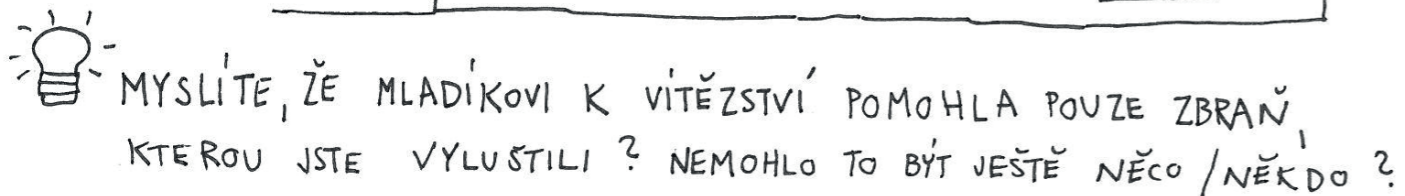 MYSLÍTE, ŽE MLADÍKOVI K VÍTĚZSTVÍ POMOHLA POUZE ZBRAŇ,
KTEROU JSTE VYLUŠTILI? NEMOHLO TO BÝT JEŠTĚ NĚCO/NĚKDO?